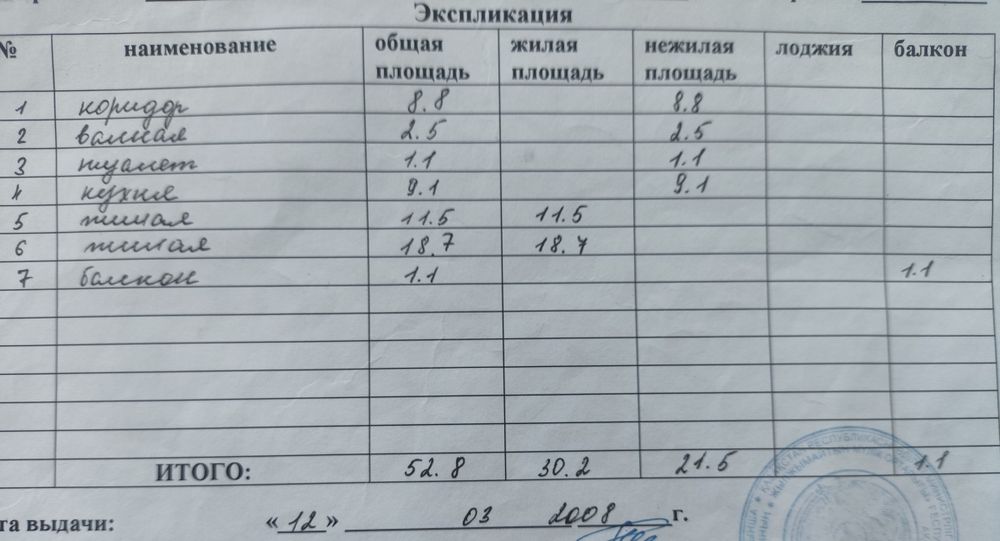 Экспликация
№ наименование общая площадь жилая площадь нежилая площадь лоджия балкон
1 коридор 8.8 8.8
2 ванная 2.5 2.5
3 туалет 1.1 1.1
4 кухня 9.1 9.1
5 жилая 11.5 11.5
6 жилая 18.7 18.7
7 балкон 1.1 1.1
ИТОГО: 52.8 30.2 21.5 1.1
та выдачи: «12» 03 2008 г.